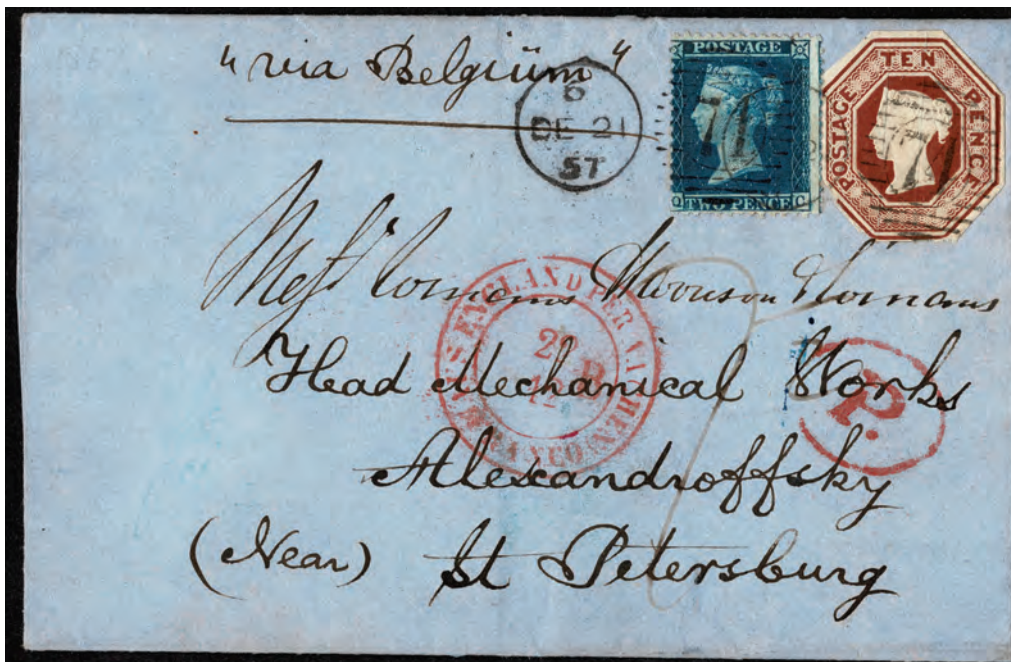 "via Belgiüm"
6
DE 21
57
POSTAGE
71
Q TWO PENCE C
POSTAGE TEN PENCE
Mess
Head Mechanical Works
Alexandroffsky
(Near) St Petersburg
AUS ENGLAND PER AACHEN FRANCO
P.